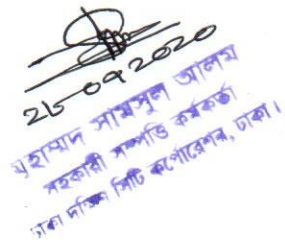 ২৮-০৭-2020
মুহাম্মদ সামসুল আলম
সহকারী সম্পত্তি কর্মকর্তা
ঢাকা দক্ষিণ সিটি কর্পোরেশন, ঢাকা।